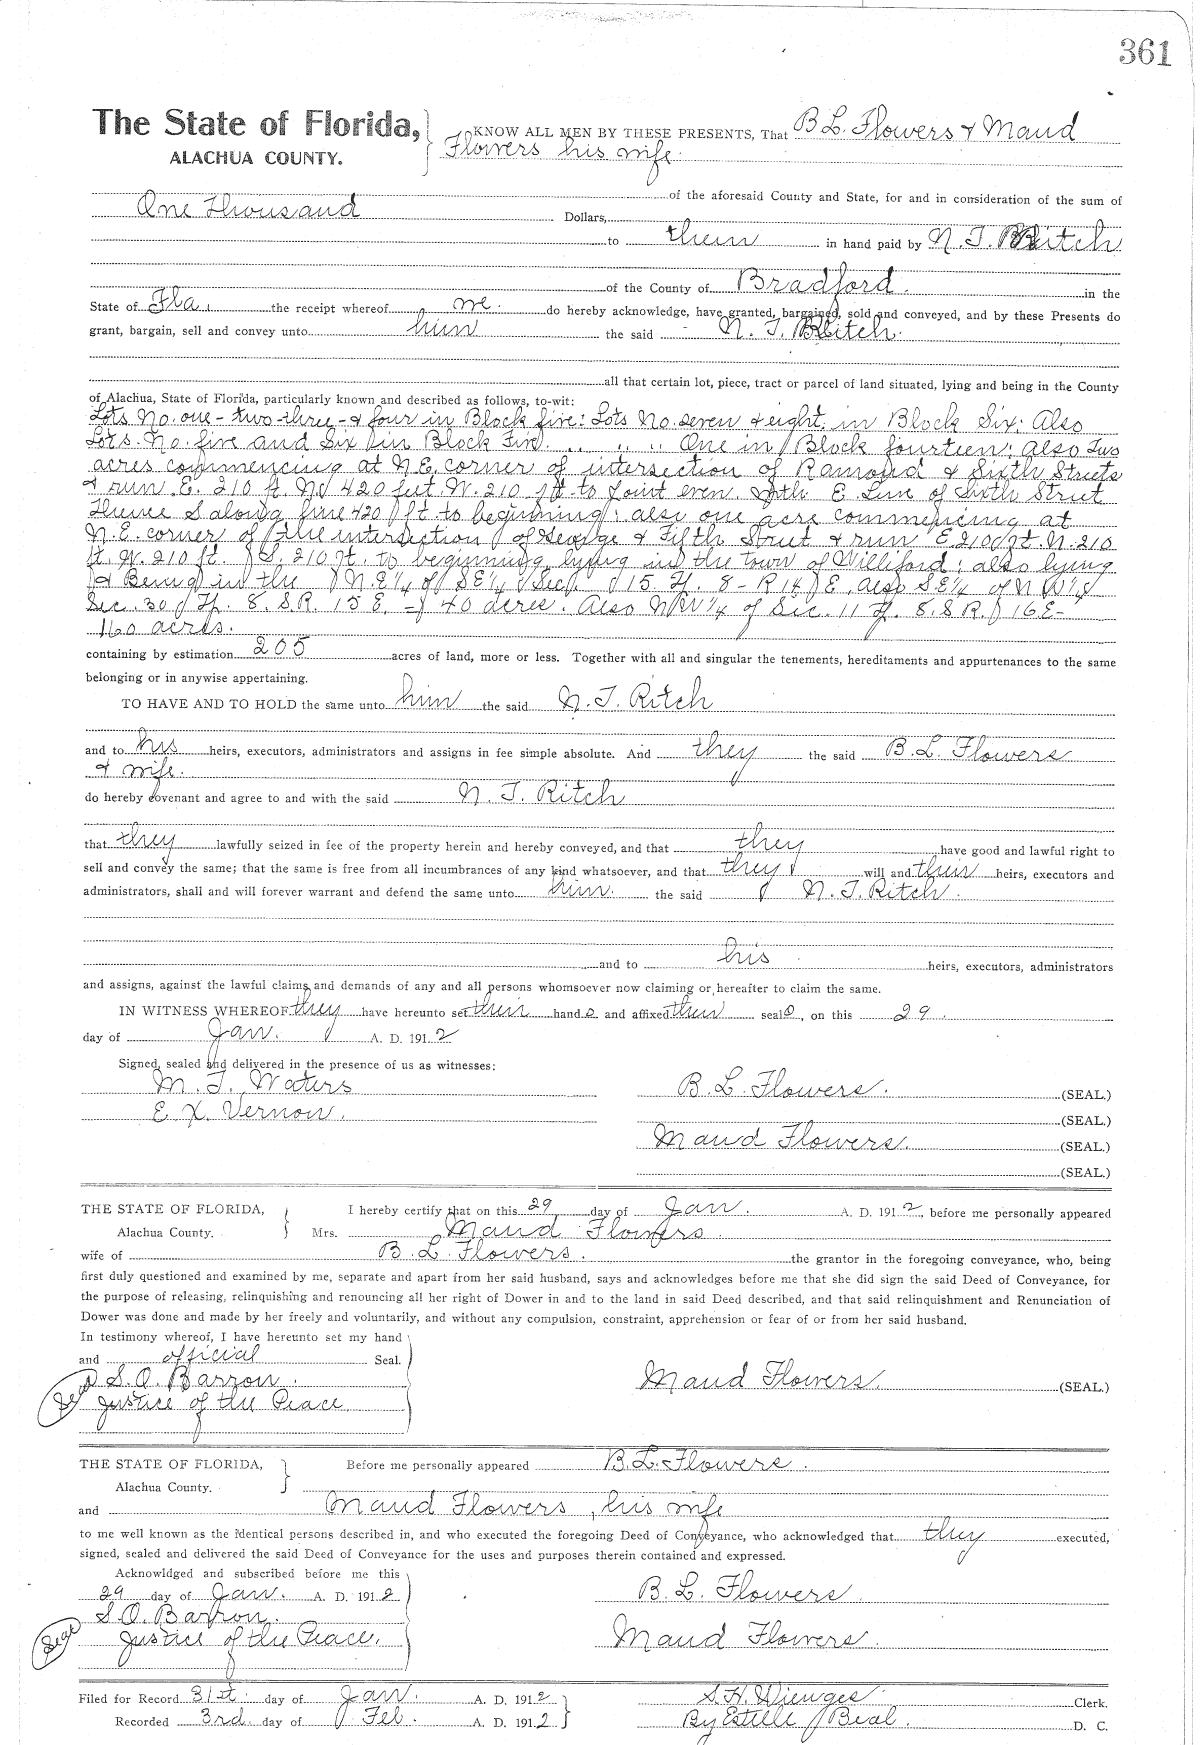 361
The State of Florida, } KNOW ALL MEN BY THESE PRESENTS, That B L. Flowers & Maud
ALACHUA COUNTY. Flowers his wife.
of the aforesaid County and State, for and in consideration of the sum of
One Thousand Dollars,
to them in hand paid by N. T. Ritch
of the County of Bradford. in the
State of Fla, the receipt whereof we do hereby acknowledge, have granted, bargained, sold and conveyed, and by these Presents do
grant, bargain, sell and convey unto him the said N. T. Ritch.
all that certain lot, piece, tract or parcel of land situated, lying and being in the County
of Alachua, State of Florida, particularly known and described as follows, to-wit:
Lots No. one - two - three - & four in Block five: Lots No. seven & eight in Block Six; Also
Lots. No. five and Six in Block " " One in Block fourteen; also Two
acres commencing at N.E. corner of intersection of Ramond & Sixth Streets
& run E. 210 ft. No 420 feet W. 210 ft to point even with E. Line of Sixth Street
Thence S along line 420 ft to beginning; also one acre commencing at
N. E. corner of the intersection of George & Fifth Street & run E 210 ft. N. 210
ft. W. 210 ft. S. 210 ft. to beginning, lying in the town of Williford; also lying
& Being in the N.E ¼ of SE ¼ Sec. 15. Tp. 8 - R 14 E, also S.E¼ of N W ¼
Sec. 30 Tp. 8. S.R. 15 E. - 40 acres. Also NW ¼ of Sec. 11 Tp. 8. S R. 16 E-
160 acres.
containing by estimation 205 acres of land, more or less. Together with all and singular the tenements, hereditaments and appurtenances to the same
belonging or in anywise appertaining.
TO HAVE AND TO HOLD the same unto him the said N. T. Ritch
and to his heirs, executors, administrators and assigns in fee simple absolute. And they the said B. L. Flowers
& wife.
do hereby covenant and agree to and with the said N. T. Ritch
that they lawfully seized in fee of the property herein and hereby conveyed, and that they have good and lawful right to
sell and convey the same; that the same is free from all incumbrances of any kind whatsoever, and that they will and their heirs, executors and
administrators, shall and will forever warrant and defend the same unto him. the said N. T. Ritch.
and to his heirs, executors, administrators
and assigns, against the lawful claims and demands of any and all persons whomsoever now claiming or hereafter to claim the same.
IN WITNESS WHEREOF they have hereunto set their hands and affixed their seals, on this 29.
day of Jan. A. D. 1912
Signed, sealed and delivered in the presence of us as witnesses:
M. T. Waters B. L. Flowers. (SEAL.)
E X. Vernon. (SEAL.)
Maud Flowers. (SEAL.)
(SEAL.)
THE STATE OF FLORIDA, } I hereby certify that on this 29 day of Jan. A. D. 1912, before me personally appeared
Alachua County. Mrs. Maud Flowers.
wife of B. L. Flowers. the grantor in the foregoing conveyance, who, being
first duly questioned and examined by me, separate and apart from her said husband, says and acknowledges before me that she did sign the said Deed of Conveyance, for
the purpose of releasing, relinquishing and renouncing all her right of Dower in and to the land in said Deed described, and that said relinquishment and Renunciation of
Dower was done and made by her freely and voluntarily, and without any compulsion, constraint, apprehension or fear of or from her said husband.
In testimony whereof, I have hereunto set my hand
and official Seal.
S. O. Barron. Maud Flowers. (SEAL.)
Seal Justice of the Peace
THE STATE OF FLORIDA, } Before me personally appeared B. L. Flowers.
Alachua County.
and Maud Flowers, his wife
to me well known as the identical persons described in, and who executed the foregoing Deed of Conveyance, who acknowledged that they executed,
signed, sealed and delivered the said Deed of Conveyance for the uses and purposes therein contained and expressed.
Acknowldged and subscribed before me this
29 day of Jan. A. D. 1912 B. L. Flowers
S. O. Barron.
Seal Justice of the Peace. Maud Flowers.
Filed for Record 31st day of Jan. A. D. 1912 S. H. Wienges Clerk.
Recorded 3rd day of Feb. A. D. 1912 By Estelle Beal. D. C.